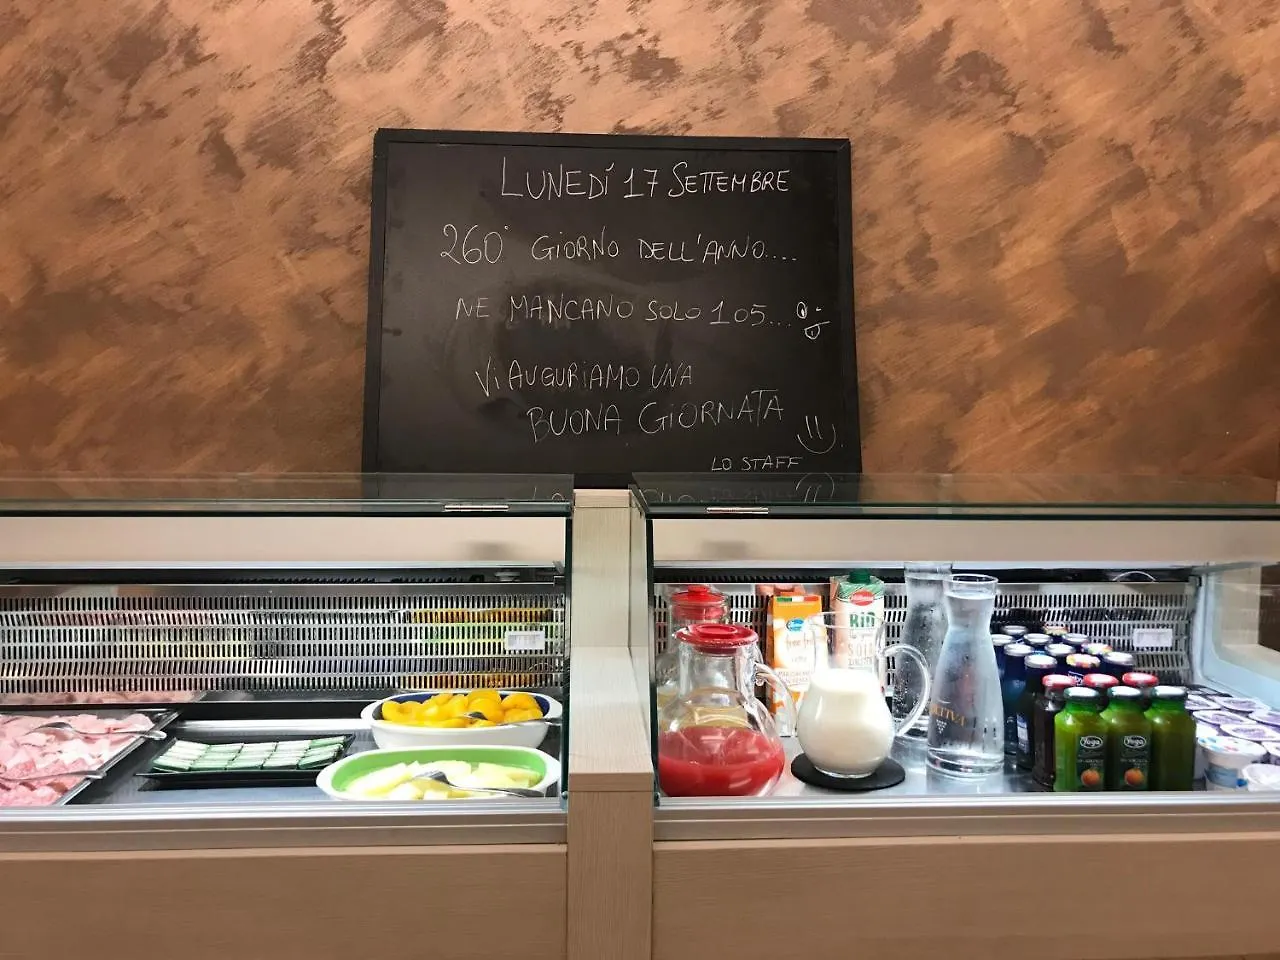 LUNEDÍ 17 SETTEMBRE
260° GIORNO DELL'ANNO....
NE MANCANO SOLO 105...
Vi AUGURIAMO UNA
BUONA GIORNATA
LO STAFF
BIO
SOIA
Yoga
Yoga